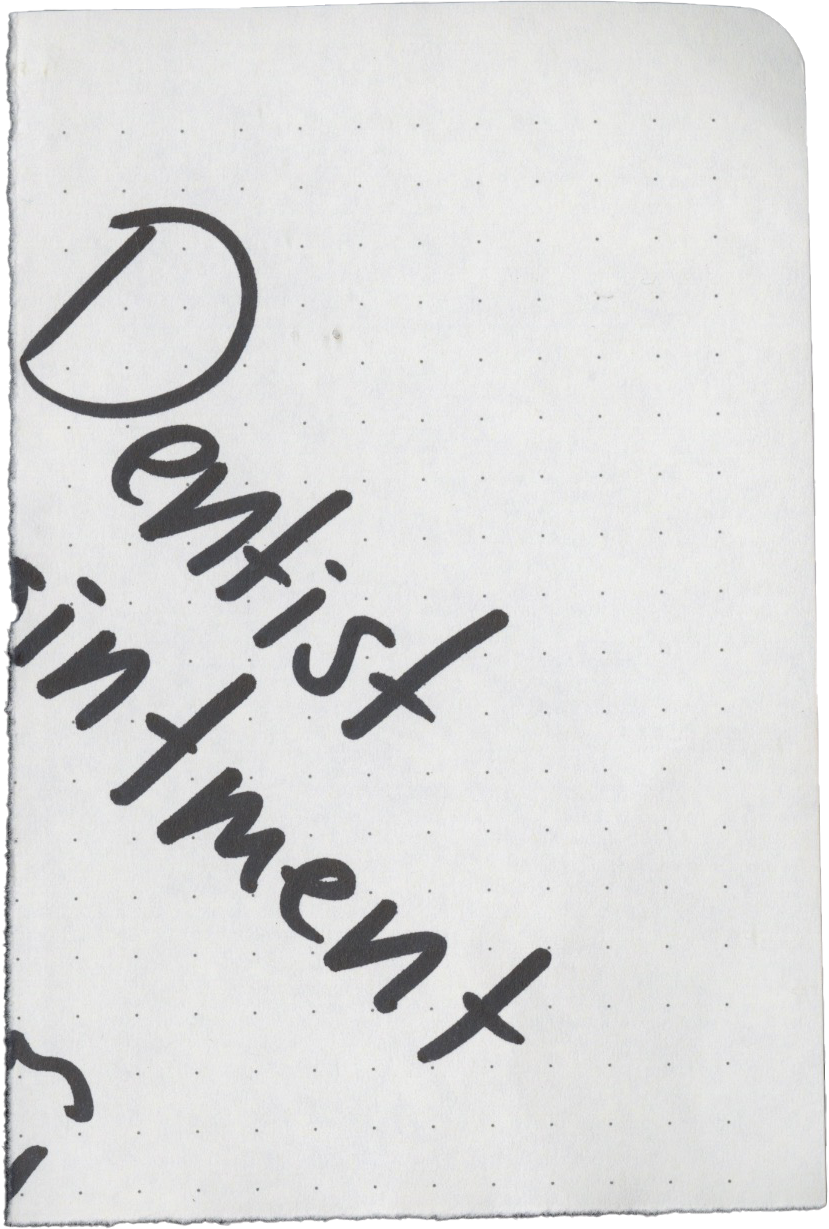 Dentist
intment